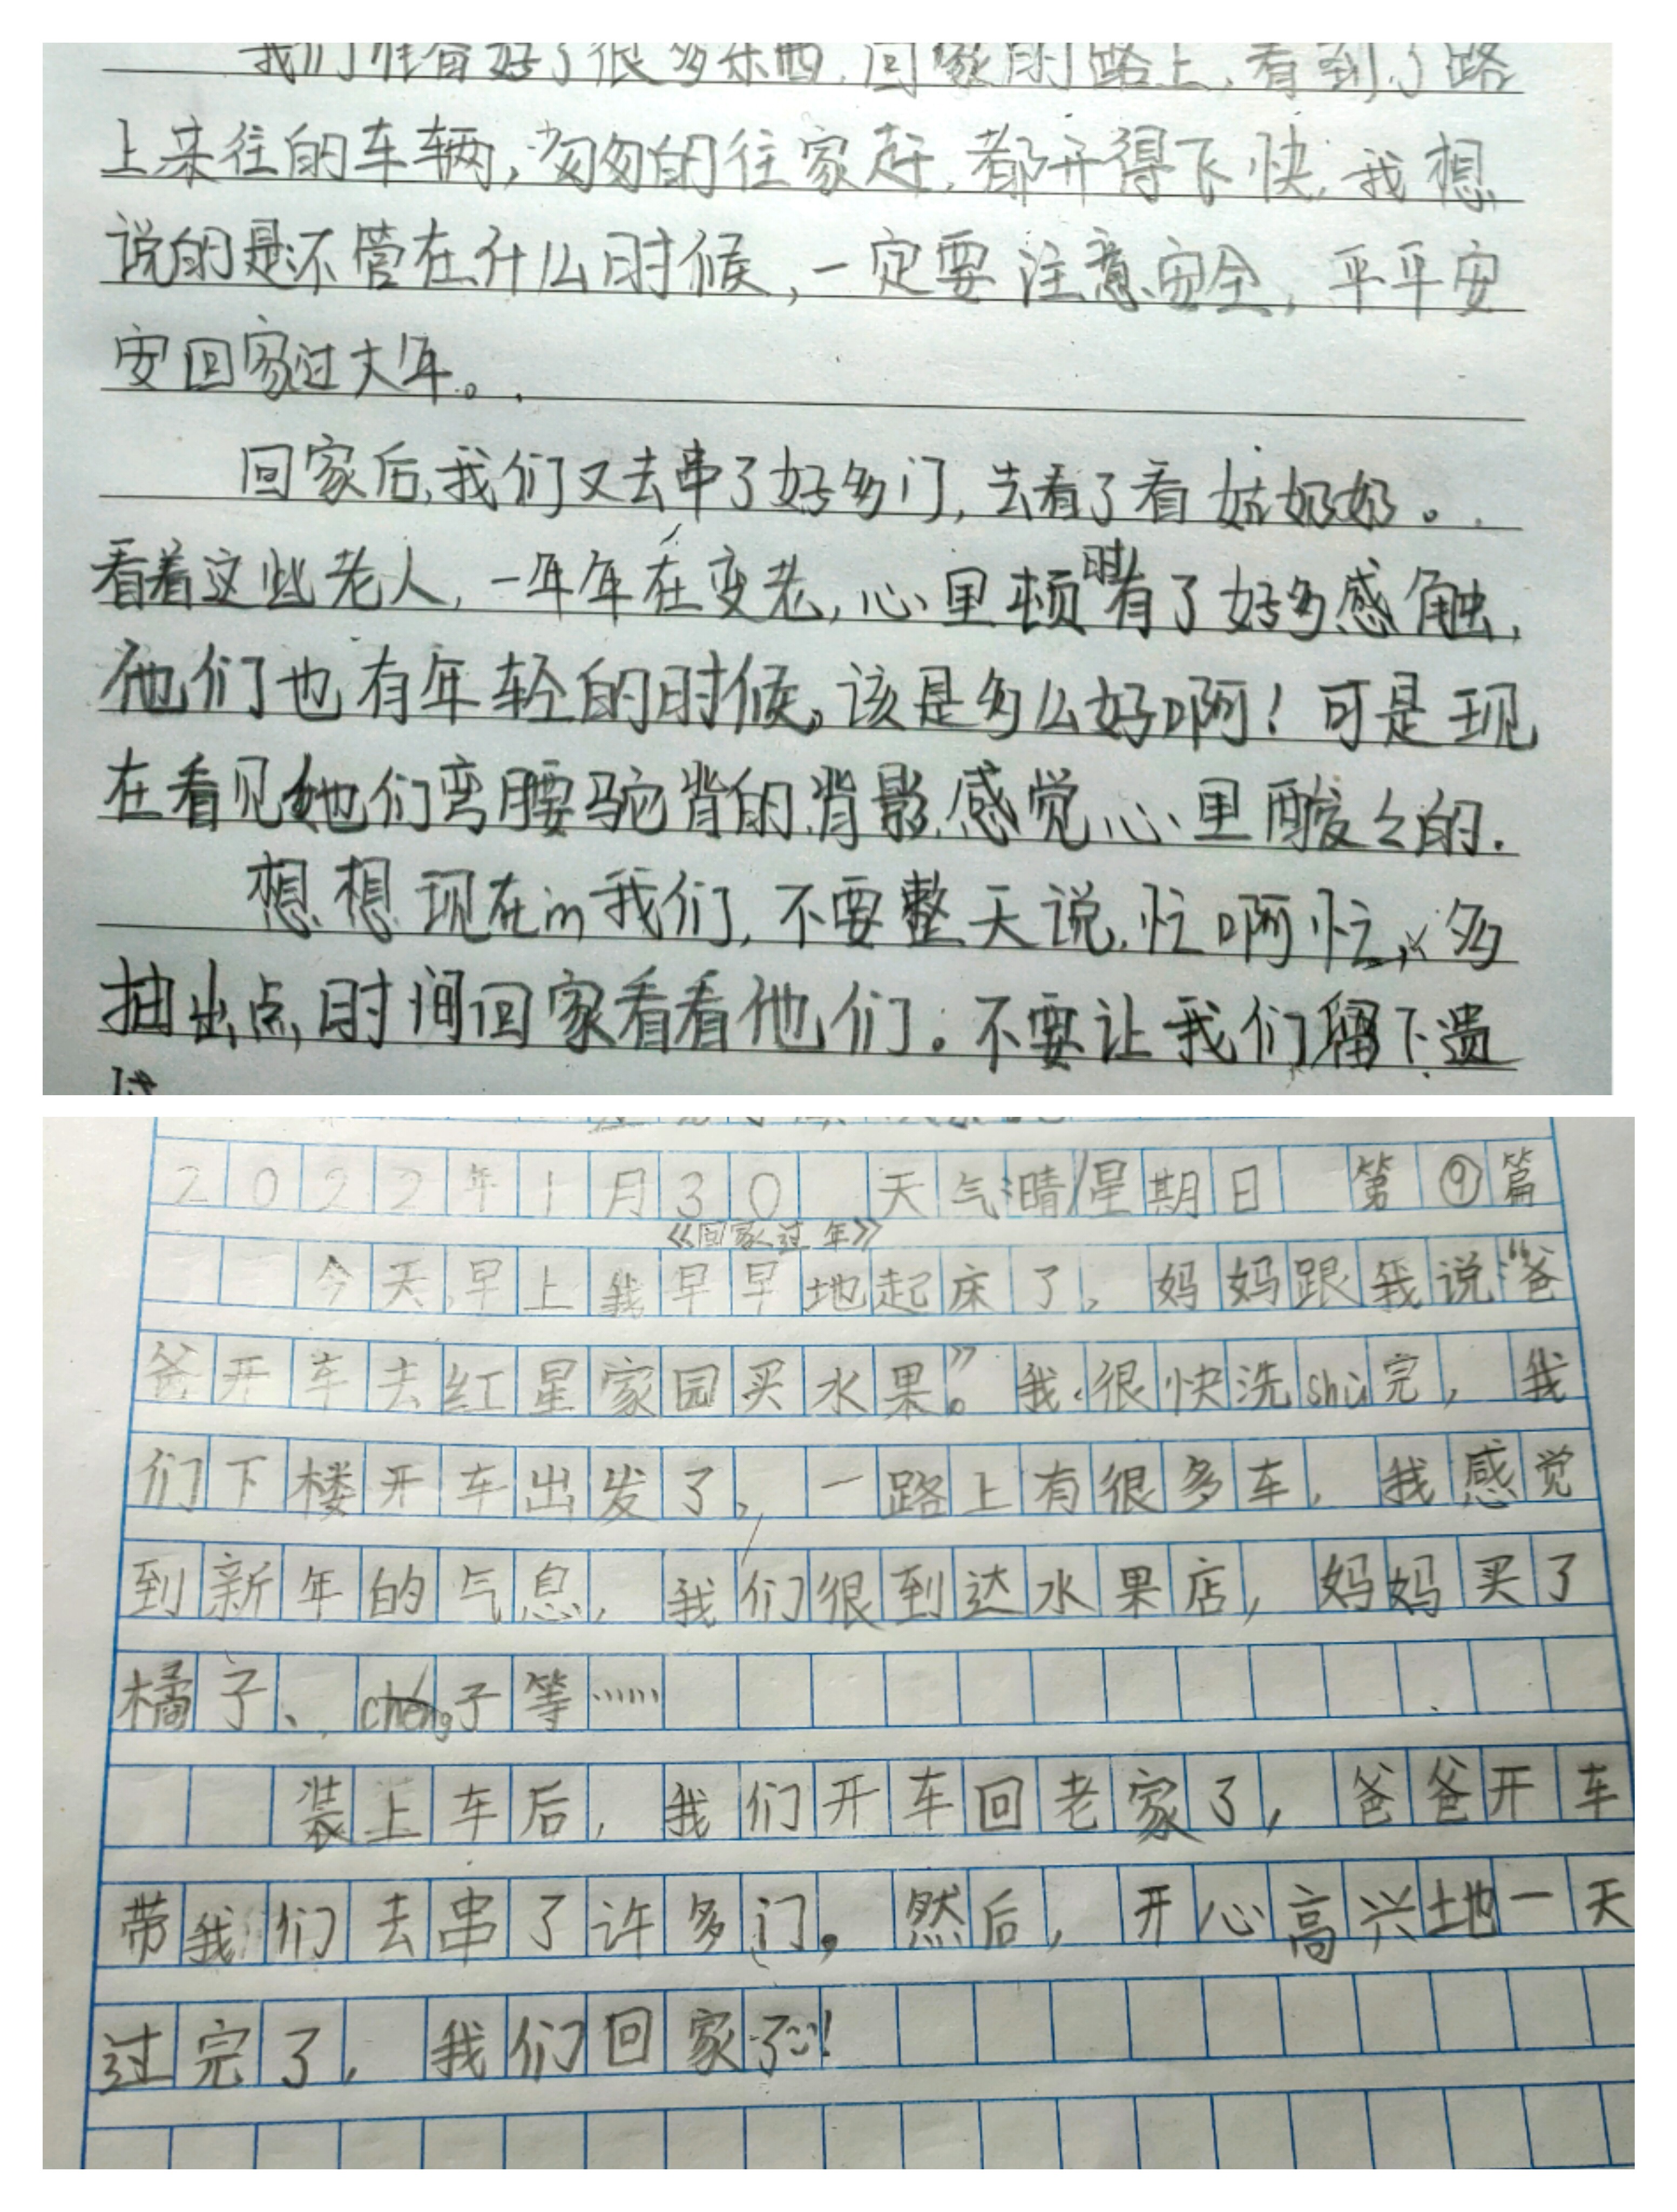 我们准备好了很多东西,回家的路上,看到了路
上来往的车辆,匆匆的往家赶,都开得飞快,我想
说的是不管在什么时候,一定要注意安全,平平安
安回家过大年。
回家后,我们又去串了好多门,去看了看姑奶奶。
看着这些老人,一年年在变老,心里顿时有了好多感触,
他们也有年轻的时候,该是多么好啊!可是现
在看见她们弯腰驼背的背影,感觉心里酸々的.
想想现在的我们,不要整天说,忙啊忙,多
抽出点时间回家看看他们。不要让我们留下遗
2022年1月30 天气:晴/星期日 第⑨篇
《回家过年》
今天早上我早早地起床了,妈妈跟我说:“爸
爸开车去红星家园买水果”。我很快洗shù完,我
们下楼开车出发了,一路上有很多车,我感觉
到新年的气息,我们很到达水果店,妈妈买了
橘子、chéng子等……
装上车后,我们开车回老家了,爸爸开车
带我们去串了许多门。然后,开心高兴地一天
过完了,我们回家了!